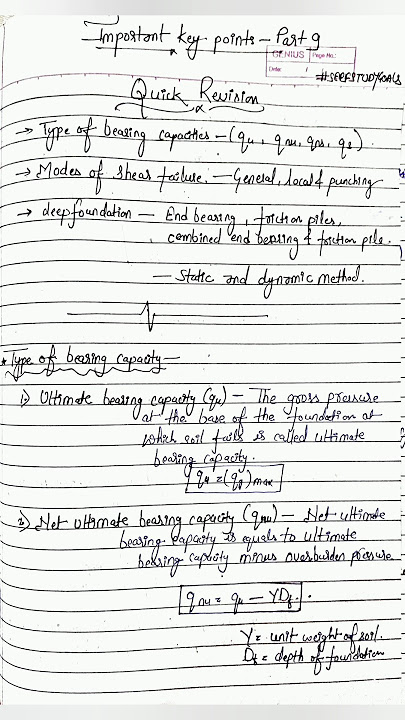 Important key points - Part 9
GENIUS Page No.:
Date: /
#SERFSTUDYGOALS
Quick Revision
→ Type of bearing capacities - (qu, qnu, qns, qs)
→ Modes of shear failure. - General, local & punching
→ deep foundation - End bearing, friction piles,
combined end bearing & friction pile.
- Static and dynamic method.
* Type of bearing capacity -
1) Ultimate bearing capacity (qu) - The gross pressure
at the base of the foundation at
which soil fails is called ultimate
bearing capacity.
qu = (qg)max
2) Net Ultimate bearing capacity (qnu) - Net ultimate
bearing capacity is equals to ultimate
bearing capacity minus overburden pressure
qnu = qu - γDf.
γ = unit weight of soil.
Df = depth of foundation